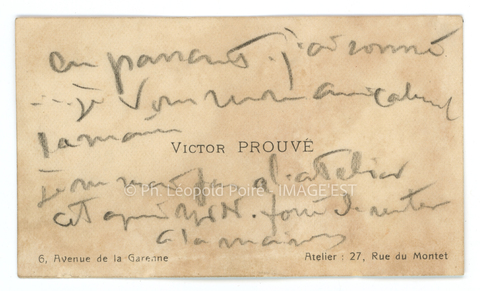 en passant j'ai sonné
... je vous serre amicalement
la main
VICTOR PROUVÉ
d'atelier
© Ph. Léopold Poiré - IMAGE'EST
cet après midi. pour
à la maison
6, Avenue de la Garenne
Atelier : 27, Rue du Montet